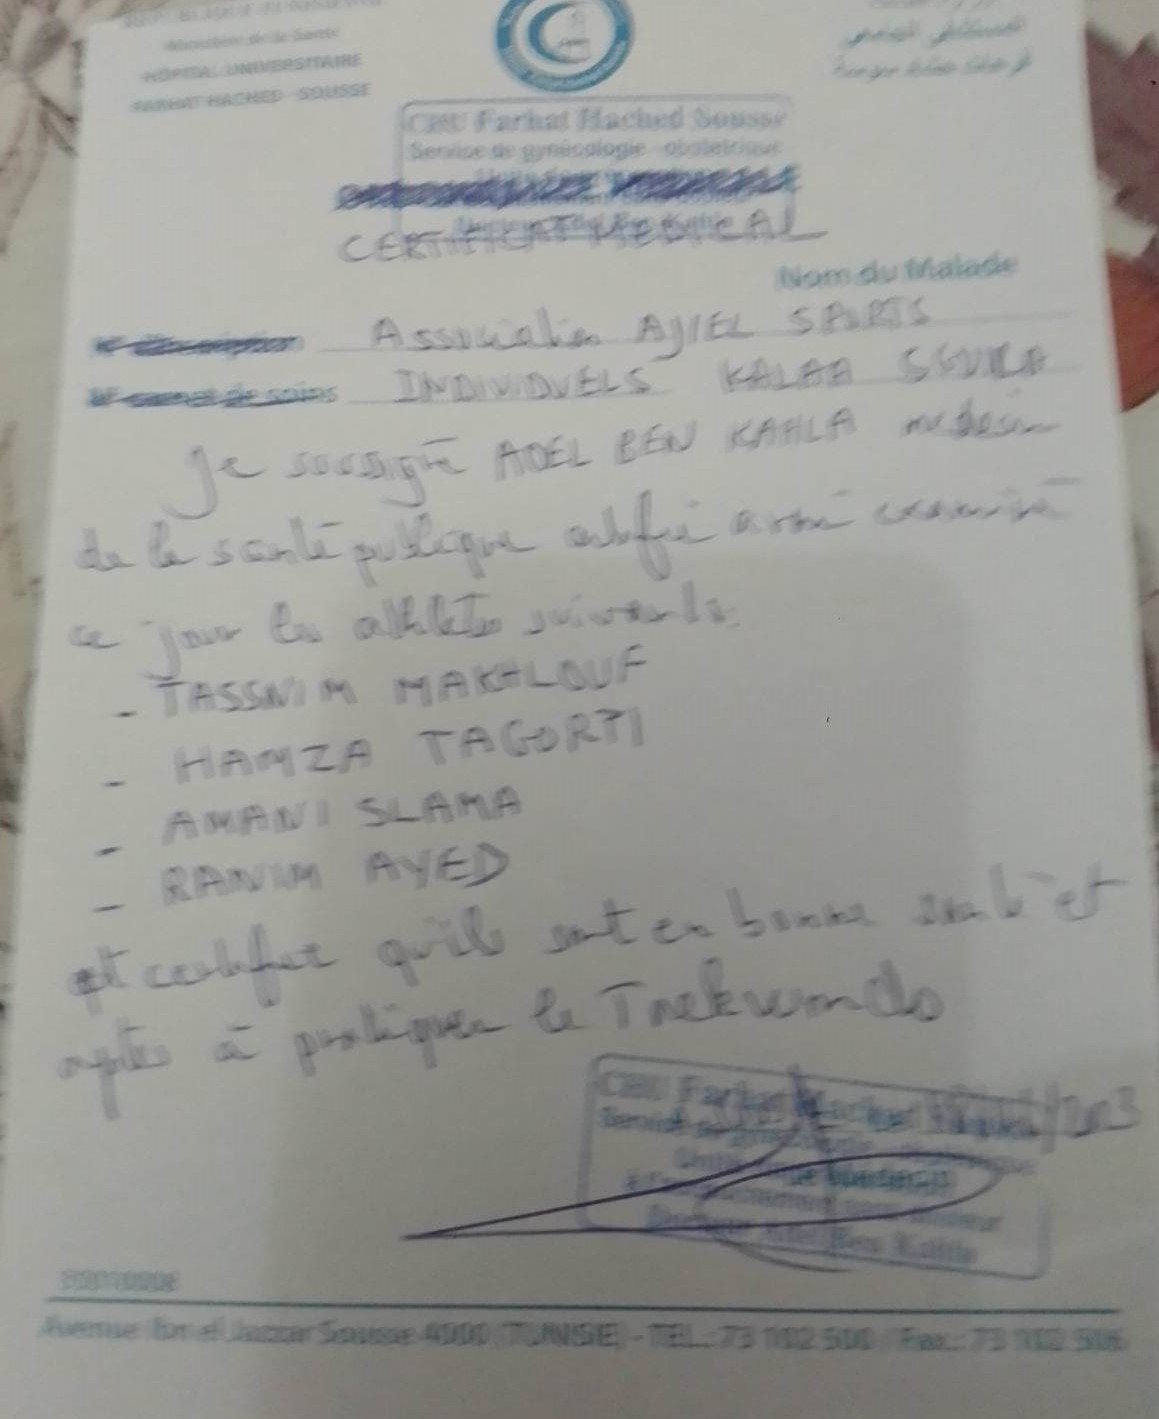 REPUBLIQUE TUNISIENNE
Ministère de la Santé
HÔPITAL UNIVERSITAIRE
FARHAT HACHED - SOUSSE
CHU Farhat Hached Sousse
Service de gynécologie - obstétrique
CERTIFICAT MEDICAL
Nom du Malade
Association AJIEL SPORTS
de soins INDIVIDUELS KALAA SGUIRA
Je soussigné ADEL BEN KAHLA medecin
de la santé publique certifie avoir examiné
ce jour les athlètes suivants:
- TASSNIM MAKHLOUF
- HAMZA TAGORTI
- AMANI SLAMA
- RANIM AYED
et certifier qu'ils sont en bonne santé et
aptes à pratiquer le Taekwondo
CHU Farhat Hached
Service de gynécologie - obstétrique
Docteur Adel Ben Kahla
Avenue Ibn el Jazzar Sousse 4000 (TUNISIE) - TEL.: 73 102 500 / Fax.: 73 102 506